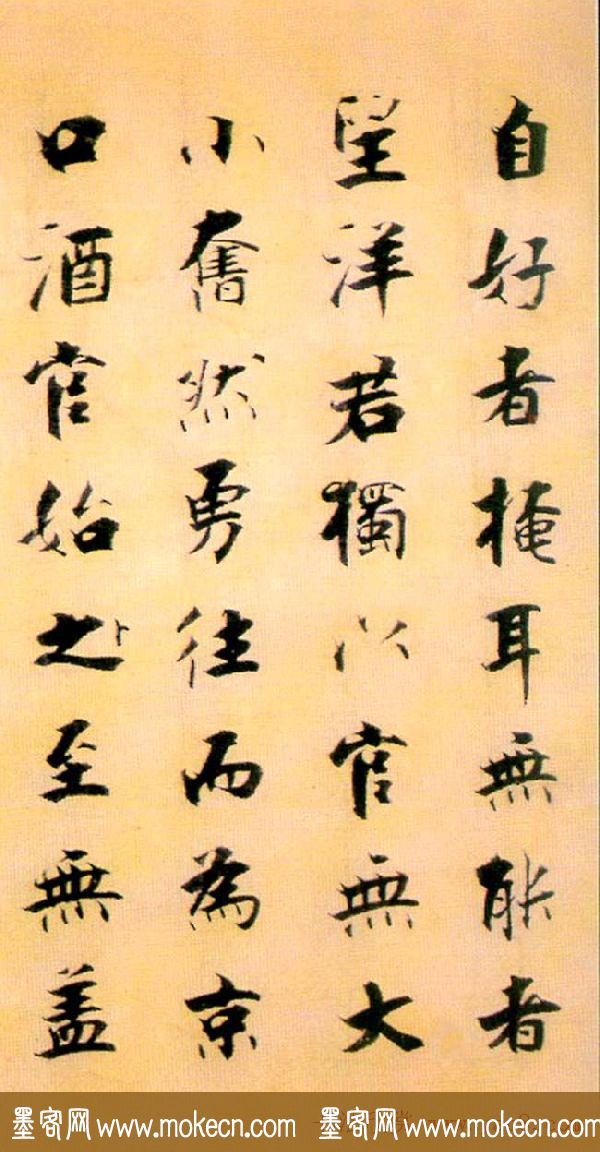 自好者掩耳無能者
望洋若獨以官無大
小奮然勇往而為京
口酒官始之卜至無盖
墨客网 www.mokecn.com 墨客网 www.mokecn.com